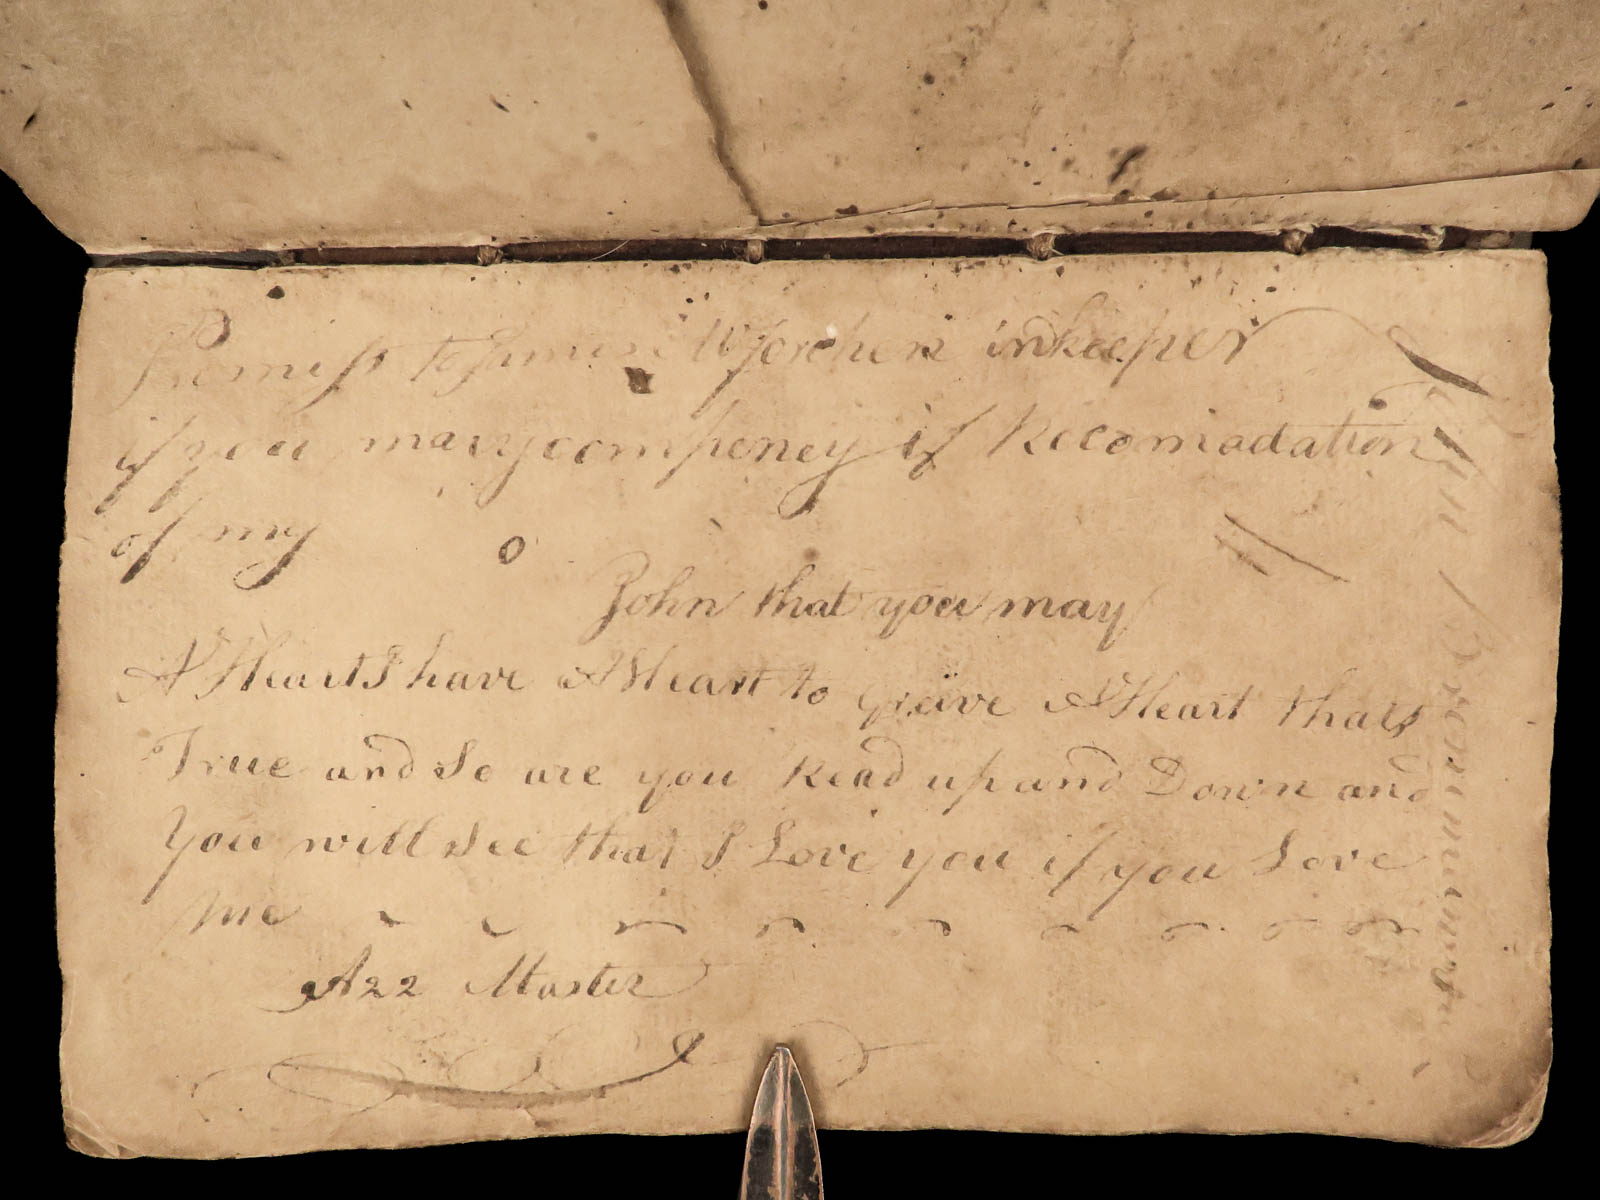 Promiss to inkeeper
if you mary compeney if Recomadation
of my
o
John that you may
A Heart I have A Heart to greive A Heart thats
True and So are you Read up and Down and
You will See that I Love you if you Love
me
Azz Master
John